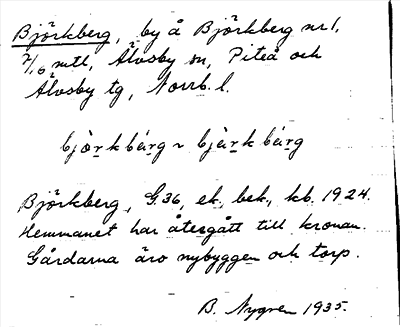 Björkberg, by å Björkberg nr 1,
7/16 mtl, Älvsby sn, Piteå och
Älvsby tg, Norrb. l.
bjö̀rkbárg ~ bjèrkbárg
Björkberg, G.36, ek., bek., kb. 1924.
Hemmanet har återgått till kronan.
Gårdarna äro nybyggen och torp.
B. Nygren 1935.